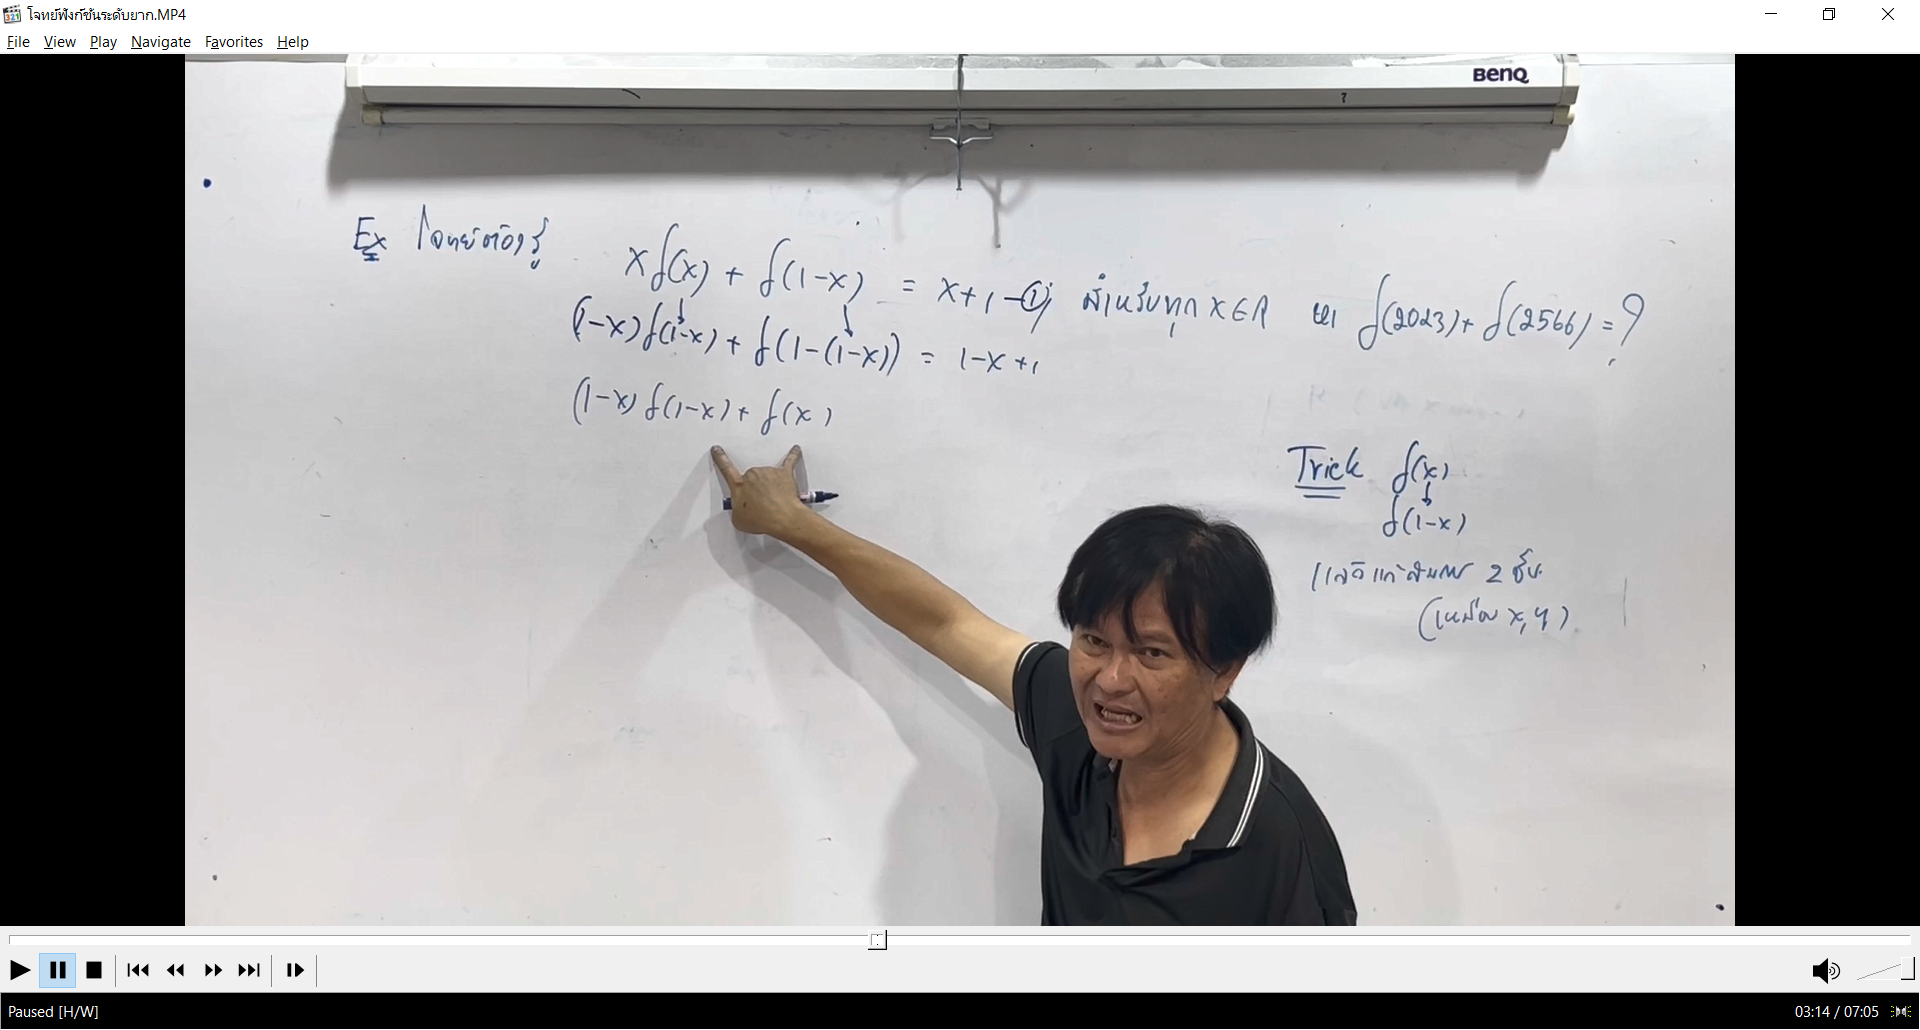 โจทย์ฟังก์ชันระดับยาก.MP4
File View Play Navigate Favorites Help
BenQ
Ex โจทย์ต้องรู้
xf(x) + f(1-x) = x+1 -①; สำหรับทุก x∈R หา f(2023)+f(2566)=?
(1-x)f(1-x) + f(1-(1-x)) = 1-x+1
(1-x)f(1-x)+f(x)
Trick f(x)
f(1-x)
แล้วแก้สมการ 2 ชั้น
(เหมือน x,y)
Paused [H/W]
03:14 / 07:05